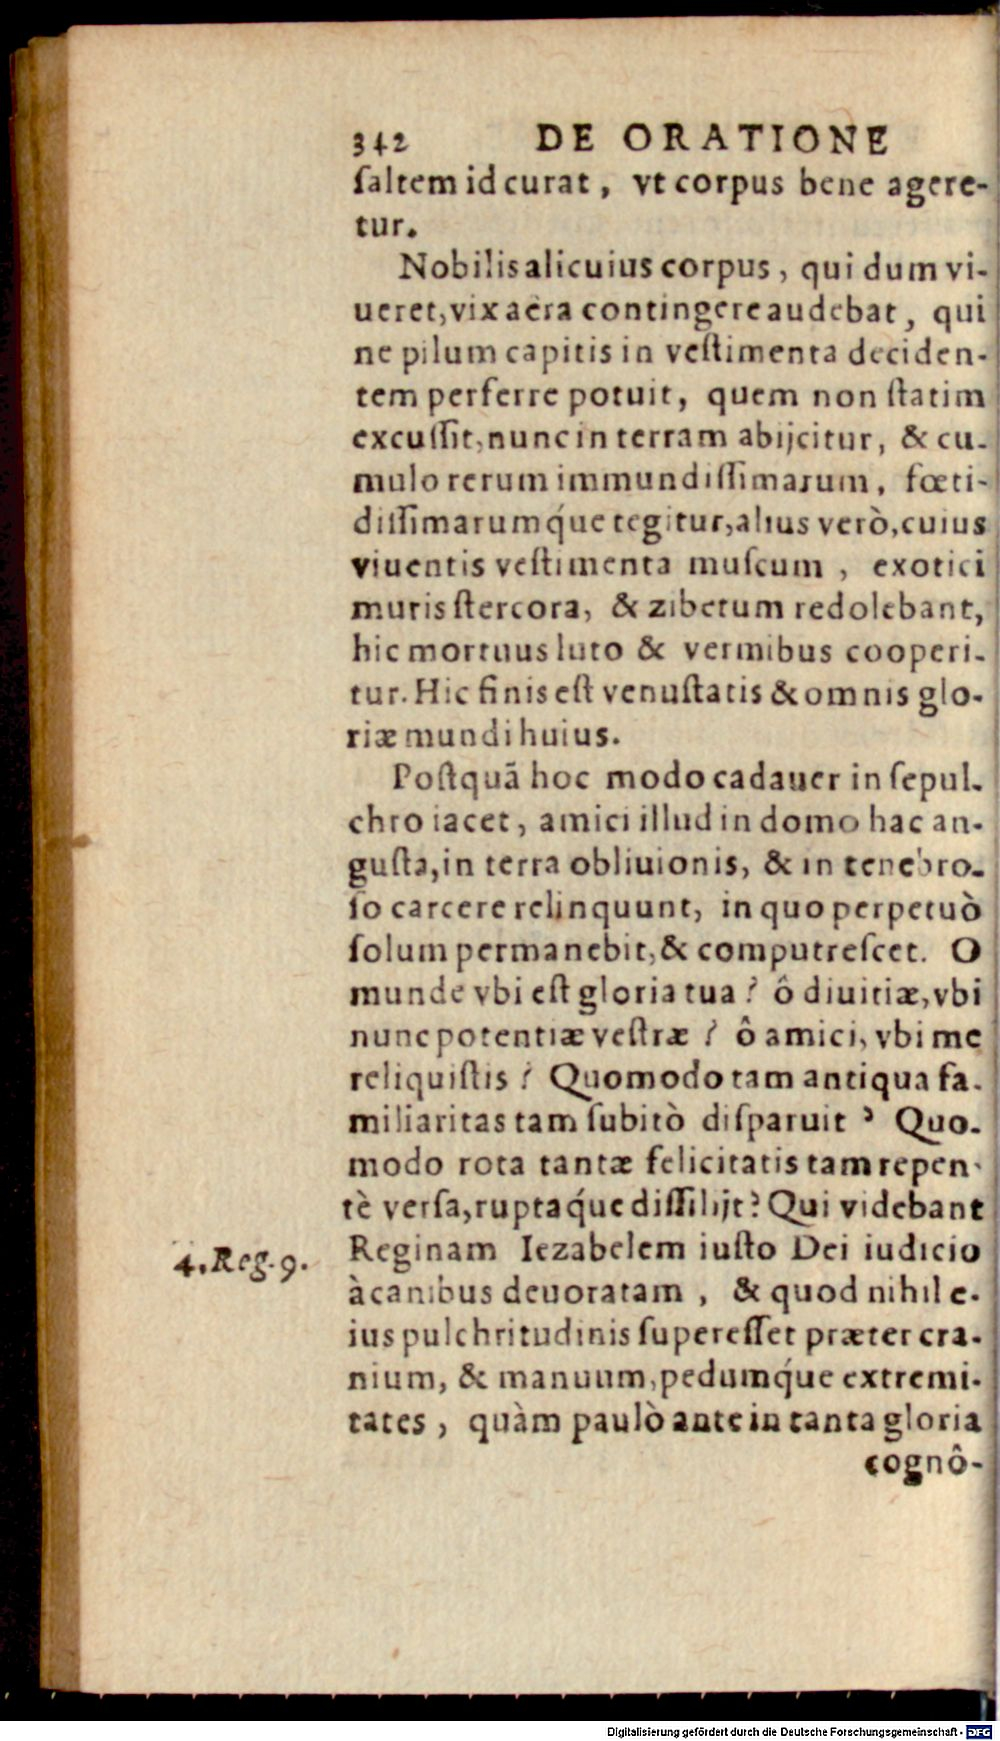 342 DE ORATIONE
ſaltem id curat, vt corpus bene agere-
tur.
Nobilis alicuius corpus, qui dum vi-
ueret, vix aëra contingere audebat, qui
ne pilum capitis in veſtimenta deciden-
tem perferre potuit, quem non ſtatim
excuſſit, nunc in terram abijcitur, & cu-
mulo rerum immundiſſimarum, fœti-
diſſimarumq́ue tegitur, alius verò, cuius
viuentis veſtimenta muſcum, exotici
muris ſtercora, & zibetum redolebant,
hic mortuus luto & vermibus cooperi-
tur. Hic finis eſt venuſtatis & omnis glo-
riæ mundi huius.
Poſtquã hoc modo cadauer in ſepul-
chro iacet, amici illud in domo hac an-
guſta, in terra obliuionis, & in tenebro-
ſo carcere relinquunt, in quo perpetuò
ſolum permanebit, & computreſcet. O
munde vbi eſt gloria tua? ô diuitiæ, vbi
nunc potentiæ veſtræ? ô amici, vbi me
reliquiſtis? Quomodo tam antiqua fa-
miliaritas tam ſubitò diſparuit? Quo-
modo rota tantæ felicitatis tam repen-
tè verſa, ruptaq́ue diſſilijt? Qui videbant
4. Reg. 9.
Reginam Iezabelem iuſto Dei iudicio
à canibus deuoratam, & quod nihil e-
ius pulchritudinis ſupereſſet præter cra-
nium, & manuum, pedumq́ue extremi-
tates, quàm paulò ante in tanta gloria
cognô-
Digitalisierung gefördert durch die Deutsche Forschungsgemeinschaft - DFG